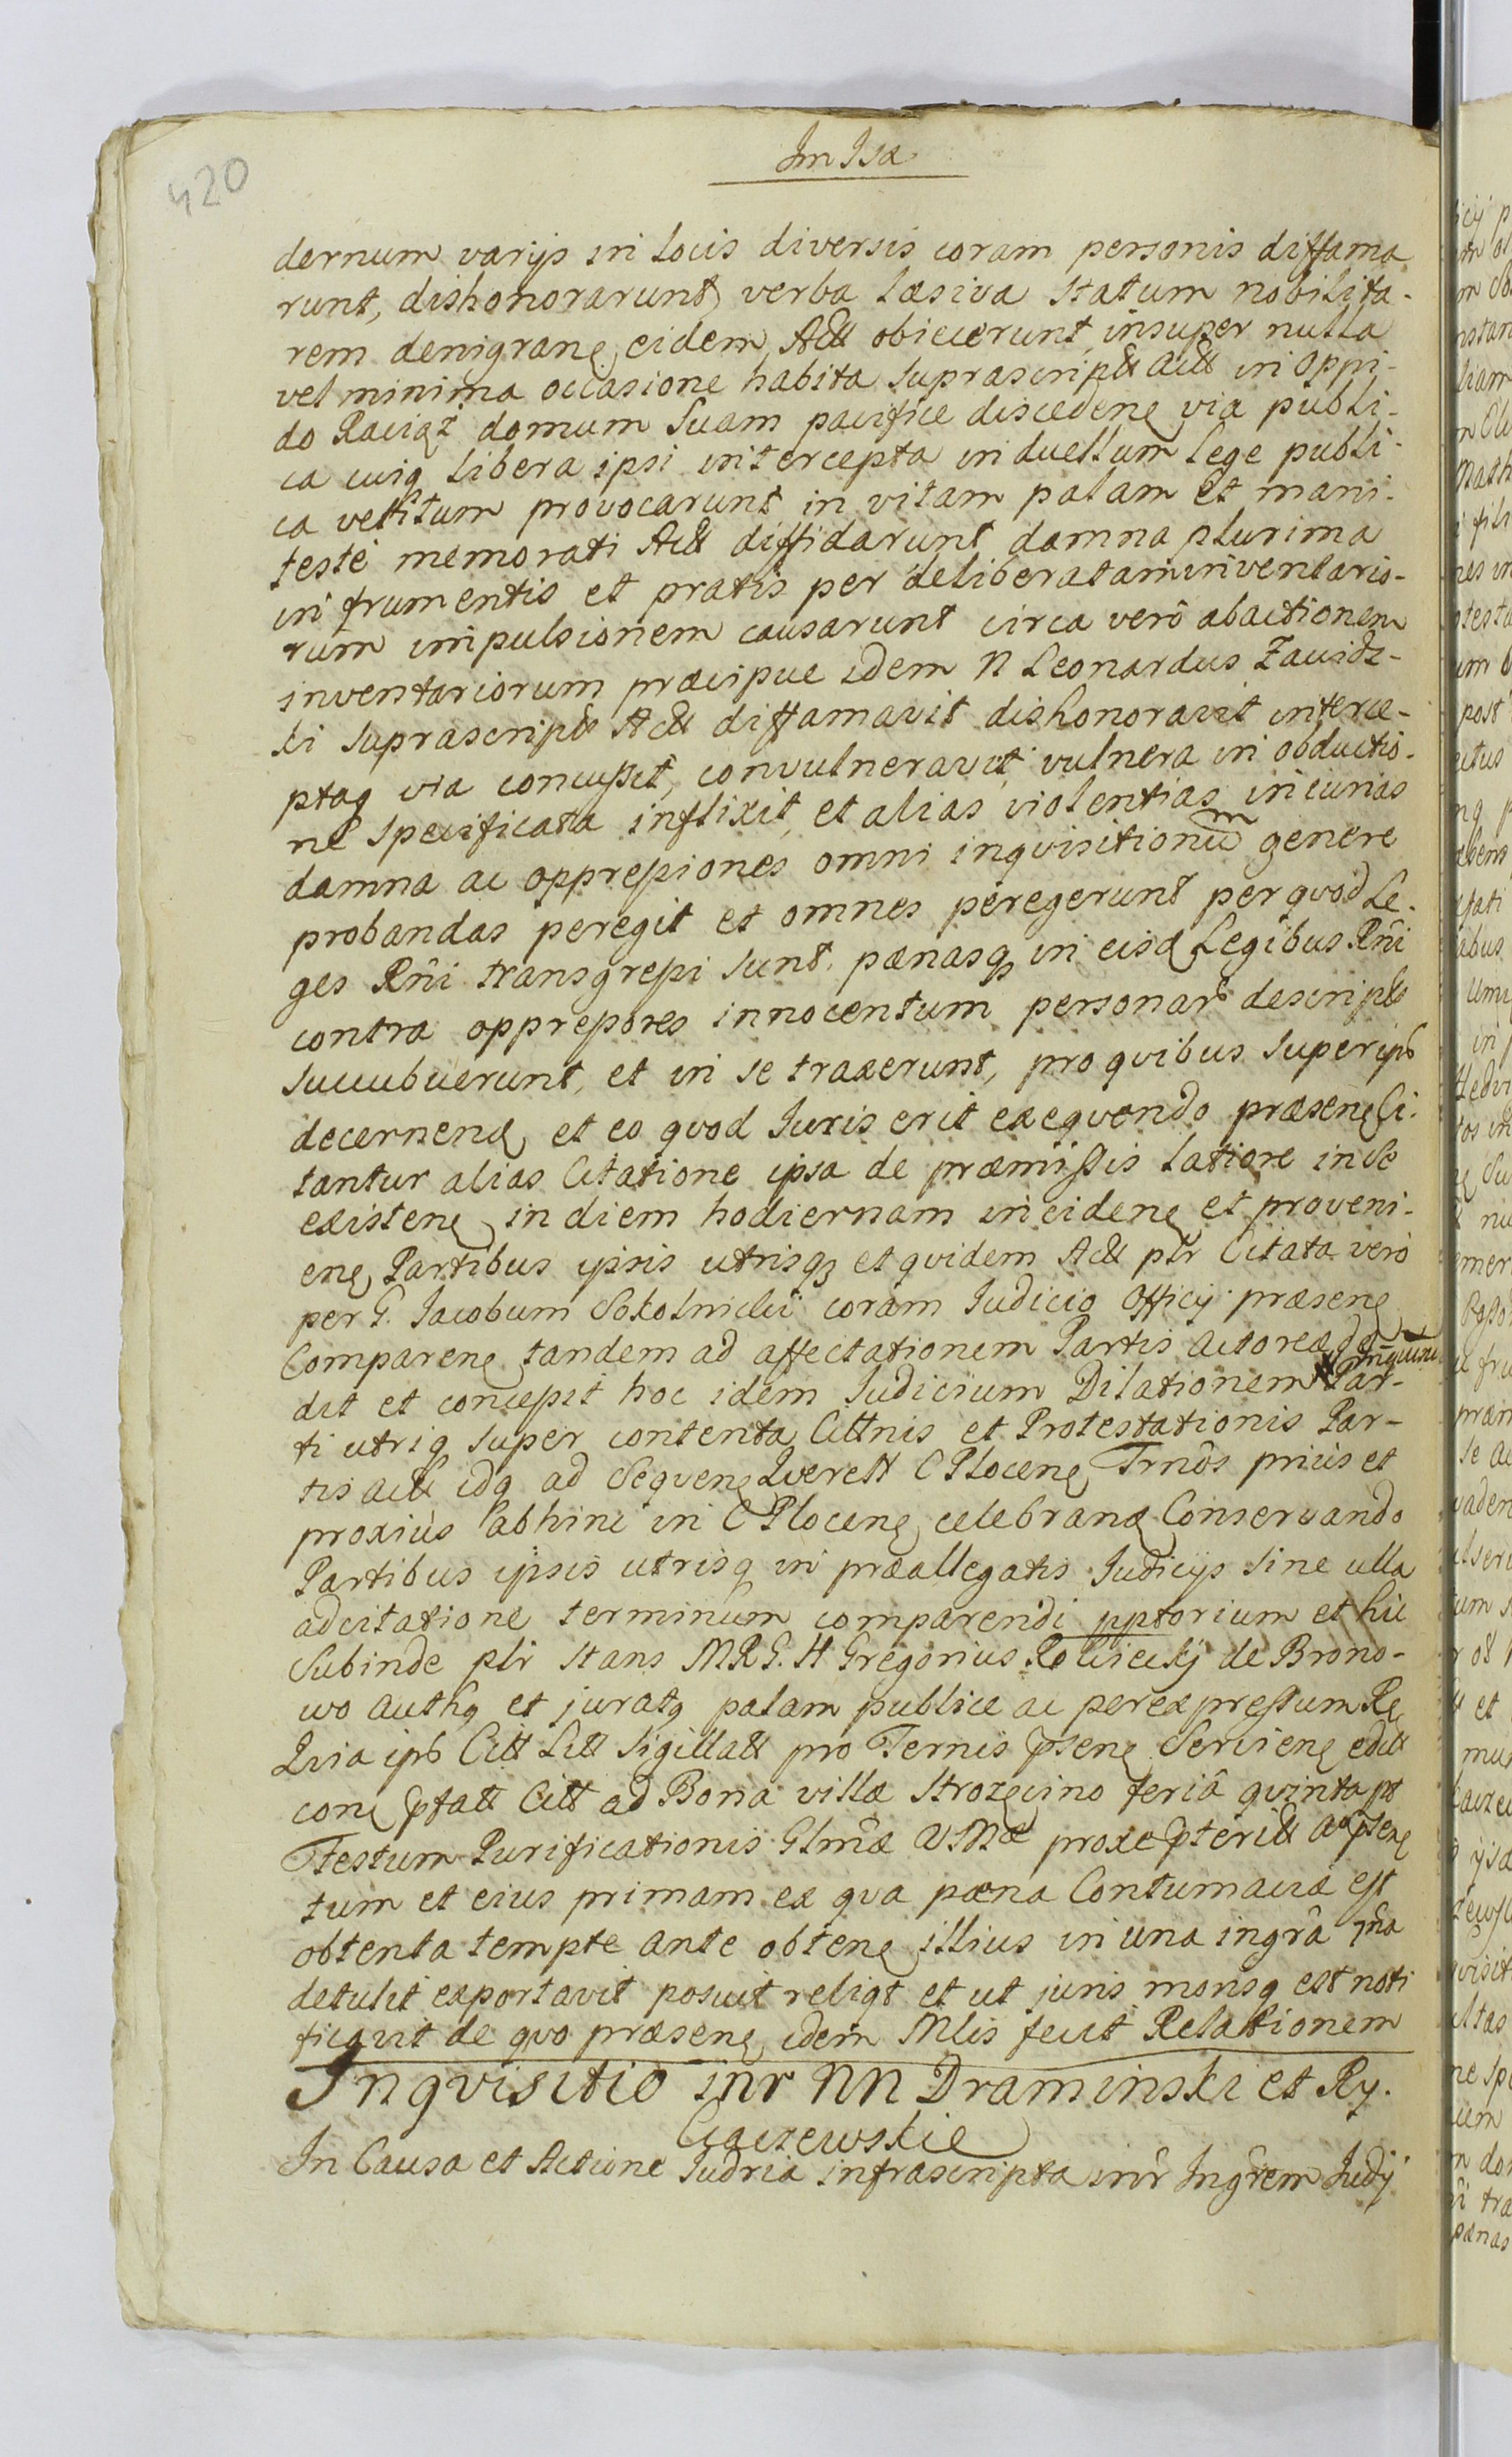 420
Im Isa
dernum varijs in locis diversis coram personis diffama
runt, dishonorarunt, verba læsiva statum nobilita-
rem denigranę eidem Actt obiecerunt, insuper nulla
vel minima occasione habita suprascriptt actt in Oppi-
do Raciąż domum suam pacifice discedenę via publi-
ca cuiq libera ipsi intercepta in duellum lege publi-
ca vetitum provocarunt in vitam palam et mani-
feste memorati Actt diffidarunt damna plurima
in frumentis et pratis per deliberatam inventario-
rum impulsionem causarunt circa verò abactionem
inventariorum præcipue idem N Leonardus Zawidz-
ki suprascriptt Actt diffamavit dishonoravit interce-
ptaq via concussit, convulneravit vulnera in obductio-
ne specificata inflixit, et alias violentias iniurias
damna ac oppressiones omni inqvisitionum genere
probandas peregit et omnes peregerunt per qvod Le-
ges Rñi transgressi sunt, pænasq in eisd Legibus Rñi
contra oppressores innocentum personar descriptt
succubuerunt, et in se traxerunt, pro qvibus super ips
decernend et eo qvod Iuris erit exeqvendo præsenę Ci-
tantur alias Citatione ipsa de præmissis latiore in se
existenę in diem hodiernam incidenę et proveni-
enę Partibus ipsis utrisq et qvidem Actt plr Citata verò
per G. Iacobum Sokolnicki coram Iudicio Officij præsenę
Comparenę tandem ad affectationem Partis actoreæ de-
dit et concessit hoc idem Iudicium Dilationem Inqvisit Par-
ti utriq super contenta Cittnis et Protestationis Par-
tis actt idq ad seqvenę Qverett C Plocenę Trnôs priùs et
proxiùs abhinc in C Plocenę celebrand Conservando
Partibus ipsis utrisq in præallegatis Iudicijs sine ulla
adcitatione terminum comparendi pptorium et hic
Subinde plr stans MRG. H Gregorius Rościecky de Brono-
wo authq et juratq palam publice ac per expressum Re
Qvia ips Citt Litt sigillatt pro Ternis psenę Servienę editt
conę pfatt Citt ad Bona villæ Strozęcino feriâ qvinta pt
Festum Purificationis Glmæ V.Mæ proxe pteritt a psenę
tum et eius primam ex qva pæna Contumaciæ est
obtenta tempte ante obtenę illius in una ingrâ mâa
detulit exportavit posuit religt et ut juris monsq est noti
ficavit de qvo præsenę idem Mlis fecit Relationem
Inqvisitio inr NN Draminski et Ry.
Ciaczewskie
In Causa et Actione Iudria infrascripta inr Ingrem Iudij